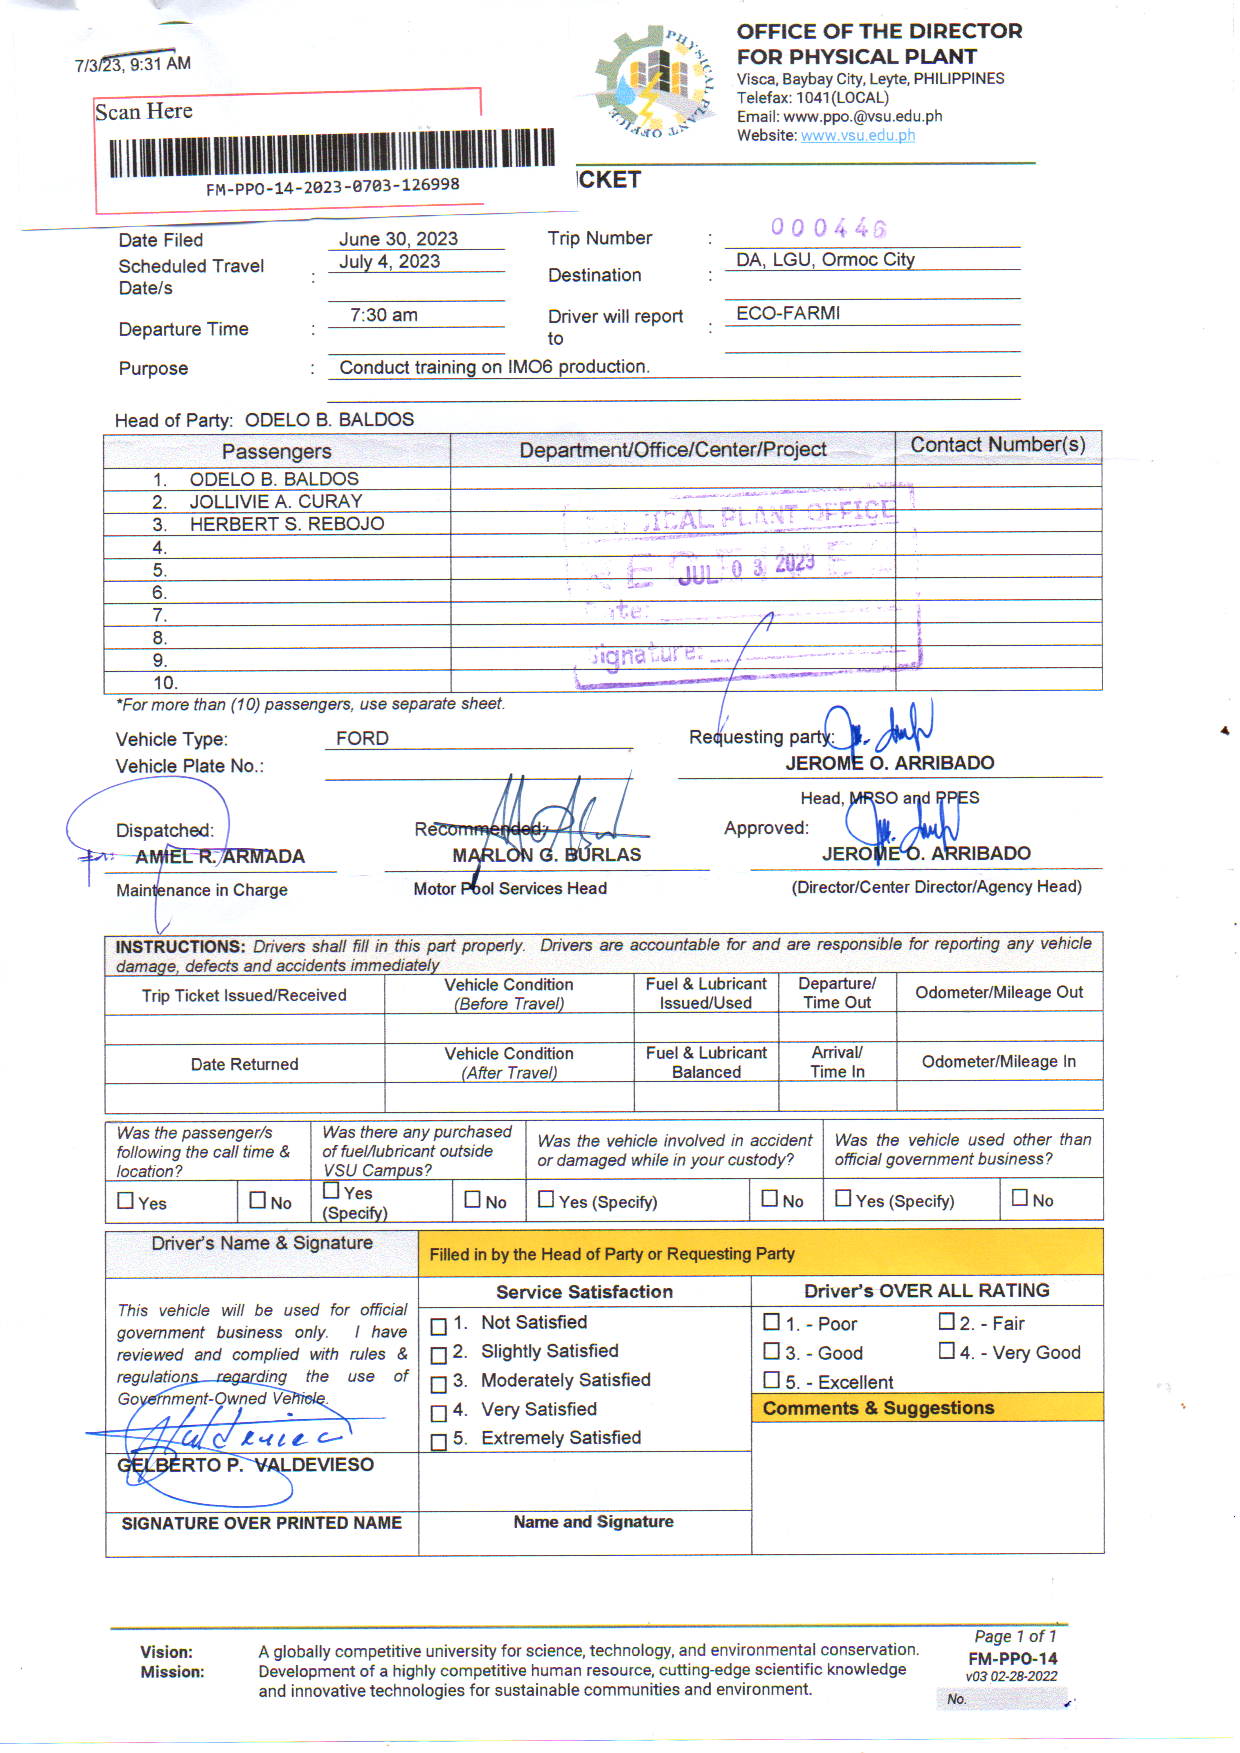 7/3/23, 9:31 AM
Scan Here
FM-PPO-14-2023-0703-126998
PHYSICAL PLANT OFFICE
OFFICE OF THE DIRECTOR
FOR PHYSICAL PLANT
Visca, Baybay City, Leyte, PHILIPPINES
Telefax: 1041(LOCAL)
Email: www.ppo.@vsu.edu.ph
Website: www.vsu.edu.ph
CKET
Date Filed June 30, 2023 Trip Number : 000446
Scheduled Travel Date/s : July 4, 2023 Destination : DA, LGU, Ormoc City
Departure Time : 7:30 am Driver will report to : ECO-FARMI
Purpose : Conduct training on IMO6 production.
Head of Party: ODELO B. BALDOS
Passengers Department/Office/Center/Project Contact Number(s)
1. ODELO B. BALDOS
2. JOLLIVIE A. CURAY
3. HERBERT S. REBOJO
4.
5.
6.
7.
8.
9.
10.
ICAL PLANT OFFICE
JUL 03 2023
ate:
ignature:
*For more than (10) passengers, use separate sheet.
Vehicle Type: FORD
Vehicle Plate No.:
Requesting party:
JEROME O. ARRIBADO
Head, MRSO and PPES
Dispatched: Recommended: Approved:
for: AMIEL R. ARMADA MARLON G. BURLAS JEROME O. ARRIBADO
Maintenance in Charge Motor Pool Services Head (Director/Center Director/Agency Head)
INSTRUCTIONS: Drivers shall fill in this part properly. Drivers are accountable for and are responsible for reporting any vehicle
damage, defects and accidents immediately
Trip Ticket Issued/Received Vehicle Condition (Before Travel) Fuel & Lubricant Issued/Used Departure/ Time Out Odometer/Mileage Out
Date Returned Vehicle Condition (After Travel) Fuel & Lubricant Balanced Arrival/ Time In Odometer/Mileage In
Was the passenger/s following the call time & location?
Was there any purchased of fuel/lubricant outside VSU Campus?
Was the vehicle involved in accident or damaged while in your custody?
Was the vehicle used other than official government business?
☐ Yes ☐ No ☐ Yes (Specify) ☐ No ☐ Yes (Specify) ☐ No ☐ Yes (Specify) ☐ No
Driver's Name & Signature
Filled in by the Head of Party or Requesting Party
This vehicle will be used for official
government business only. I have
reviewed and complied with rules &
regulations regarding the use of
Government-Owned Vehicle.
GELBERTO P. VALDEVIESO
SIGNATURE OVER PRINTED NAME
Service Satisfaction
☐ 1. Not Satisfied
☐ 2. Slightly Satisfied
☐ 3. Moderately Satisfied
☐ 4. Very Satisfied
☐ 5. Extremely Satisfied
Name and Signature
Driver's OVER ALL RATING
☐ 1. - Poor ☐ 2. - Fair
☐ 3. - Good ☐ 4. - Very Good
☐ 5. - Excellent
Comments & Suggestions
Vision: A globally competitive university for science, technology, and environmental conservation.
Mission: Development of a highly competitive human resource, cutting-edge scientific knowledge
and innovative technologies for sustainable communities and environment.
Page 1 of 1
FM-PPO-14
v03 02-28-2022
No.